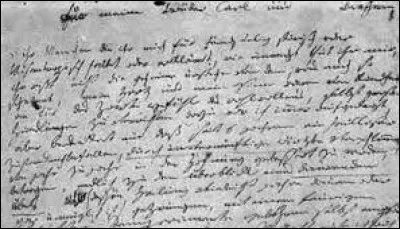 Für meine Brüder Carl und Beethowen
o ihr Menschen die ihr mich für feindseelig störisch oder
Misantropisch haltet oder erkläret, wie unrecht thut ihr mir,
ihr wißt nicht die geheime ursache von dem, was euch so
scheinet, mein Herz und mein Sinn waren von Kindheit
an für das zarte gefühl des wohlwollens, selbst große
Handlungen zu verrichten dazu war ich immer aufgelegt
aber bedenket nur daß seit 6 jahren ein heilloser
Zustand mich befallen, durch unvernünftige ärzte verschlimmert,
von jahr zu jahr in der Hofnung gebessert zu werden,
betrogen, endlich zu dem überblick eines dauernden
Übels dessen Heilung vieleicht jahre dauern oder
gar unmöglich ist gezwungen, mit einem feurigen